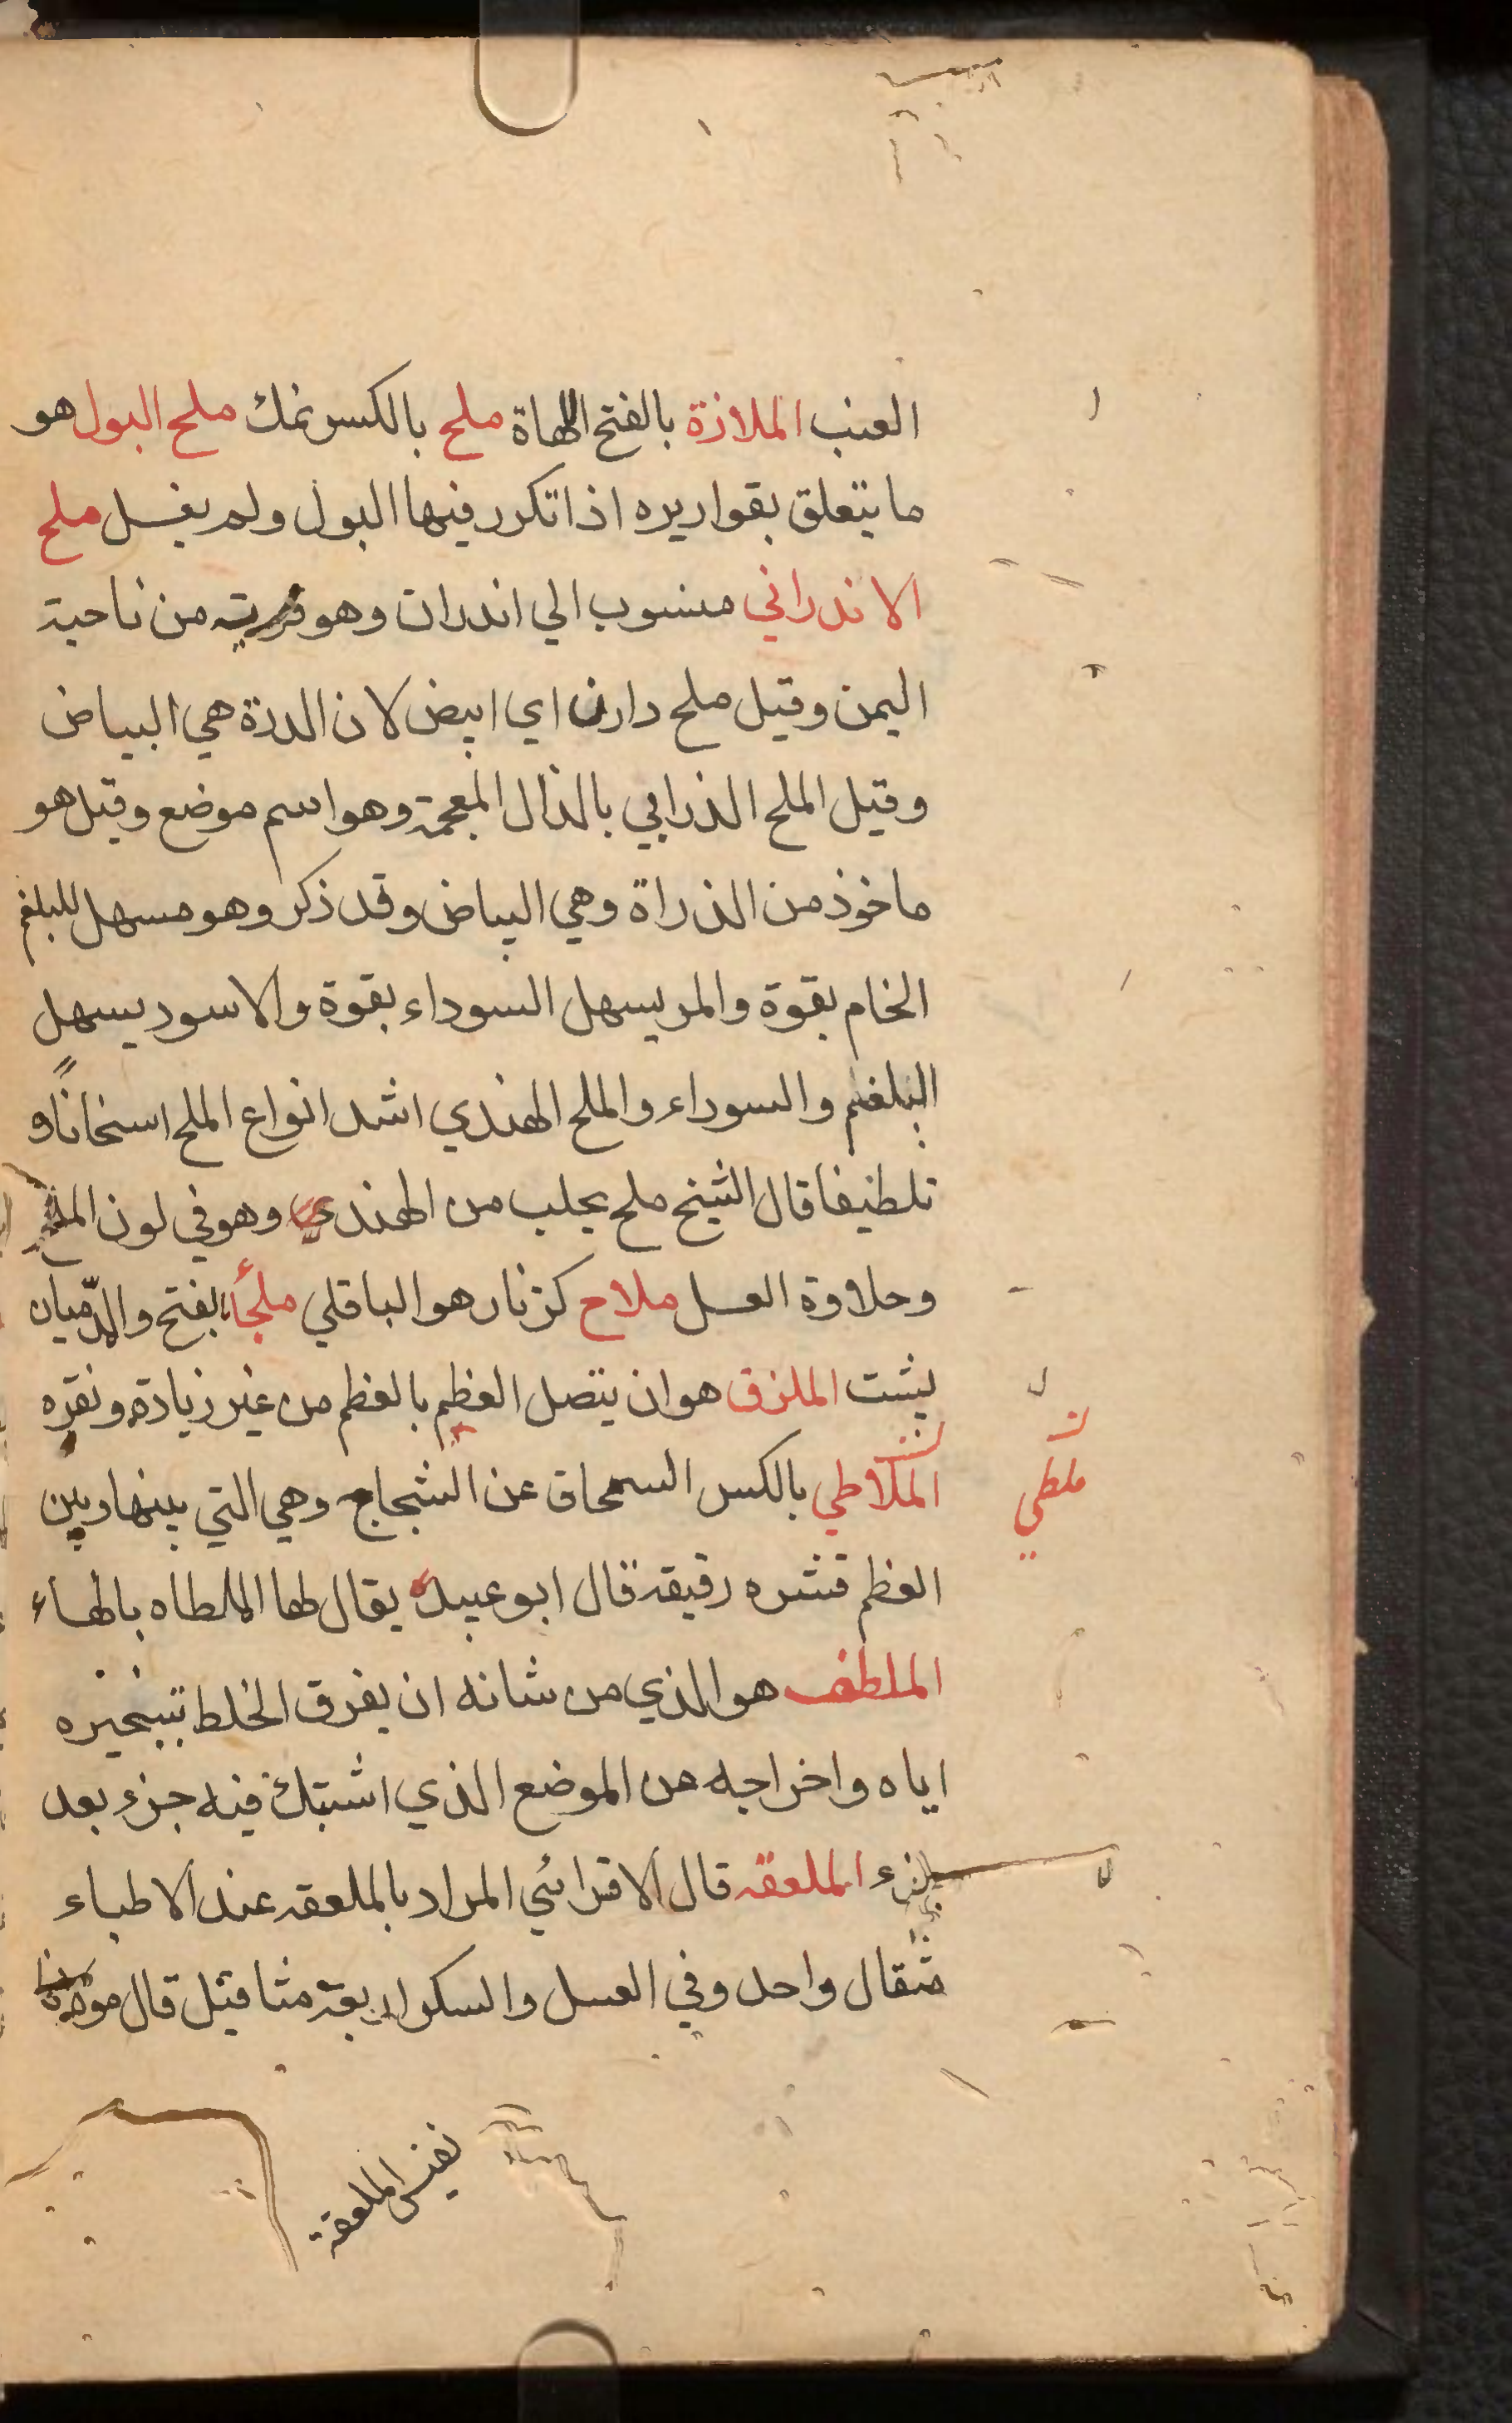 العنب الملازة بالفتح اللهاة ملح بالكسر نمك ملح البول هو
ما يتعلق بقواريره اذا تكرر فيها البول ولم يغسل ملح
الاندراني منسوب الي اندران وهو قرية من ناحية
اليمن وقيل ملح داران اي ابيض لان الدرة هي البياض
وقيل الملح الذرابي بالذال المعجمة وهو اسم موضع وقيل هو
ماخوذ من الذراة وهي البياض وقد ذكر وهو مسهل للبلغم
الخام بقوة والمر يسهل السوداء بقوة والاسود يسهل
البلغم والسوداء والملح الهندي اشد انواع الملح اسخانًا و
تلطيفا قال الشيخ ملح يجلب من الهندي وهو في لون الملح
وحلاوة العسل ملاح كزنار هو الباقلي ملجأ بفتح
يثبت الملزق هو ان يتصل العظم بالعظم من غير زيادة ونقره
الملاطي بالكسر السمحاق عن الشجاج وهي التي بينها وبين
ملطي
العظم قشره رقيقة قال ابو عبيده يقال لها الملطاه بالهاء
الملطف هو الذي من شانه ان يفرق الخلط بتبخيره
اياه واخراجه من الموضع الذي اشتبك فيه جزء بعد
جزء الملعقه قال الاقرائي المراد بالملعقه عند الاطباء
مثقال واحد وفي العسل والسكر اربعة مثاقيل قال مولانا
نفيس الملعقة